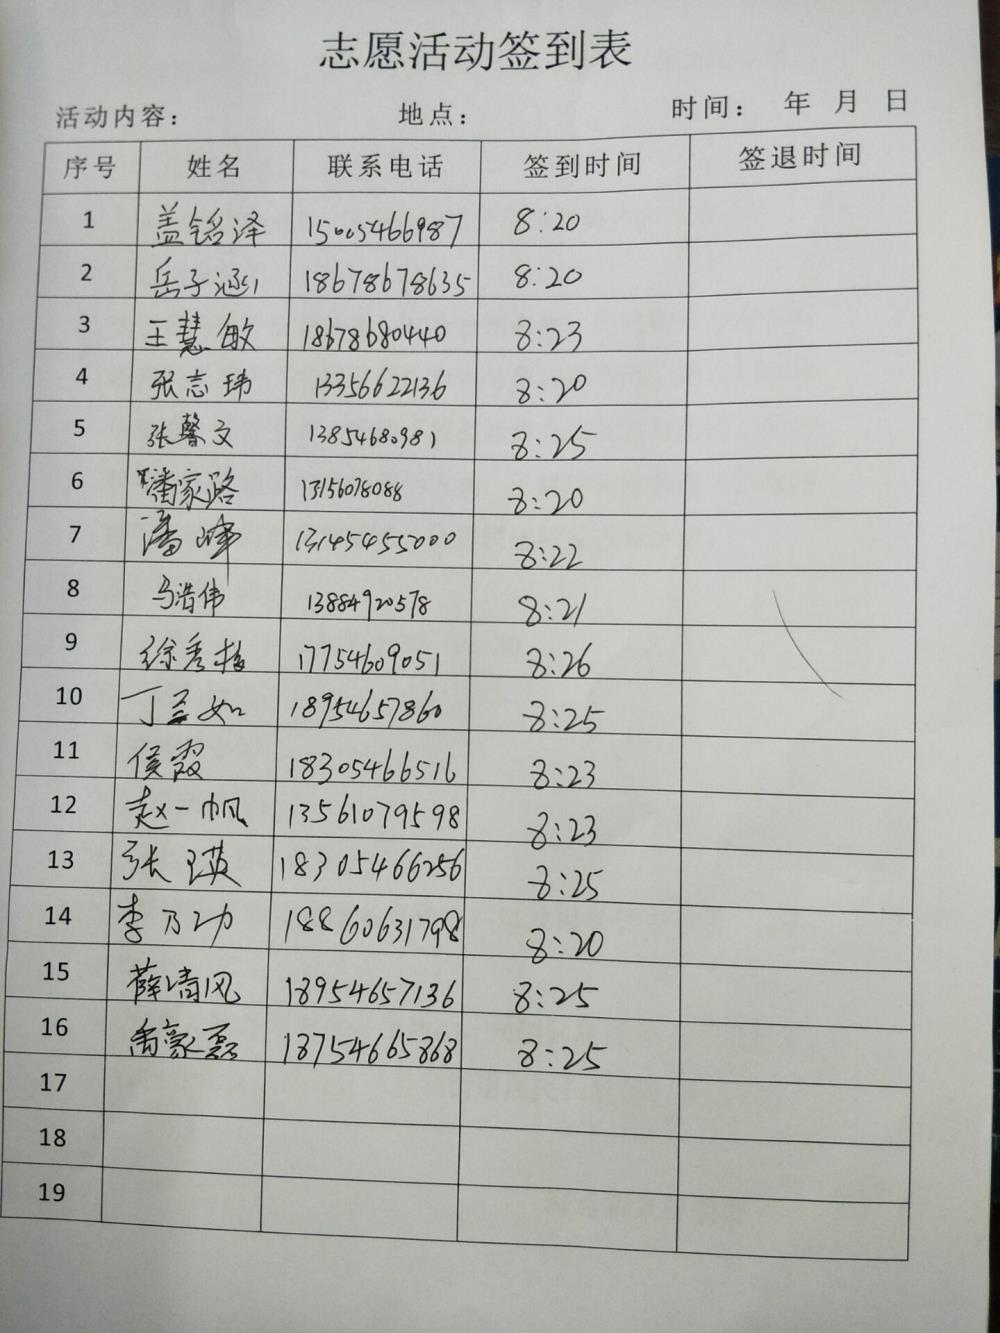 志愿活动签到表
活动内容： 地点： 时间： 年 月 日
序号 姓名 联系电话 签到时间 签退时间
1 盖铭泽 15005466987 8:20
2 岳子涵 18678678635 8:20
3 王慧敏 18678680440 8:23
4 张志玮 13356622136 8:20
5 张馨文 13854680981 8:25
6 潘家路 13156078088 8:20
7 潘峰 13145455000 8:22
8 马浩伟 13884920578 8:21
9 徐秀梅 17754609051 8:26
10 丁兰如 18954657860 8:25
11 侯霞 18305466516 8:23
12 赵一帆 13561079598 8:23
13 张瑛 18305466256 8:25
14 李乃功 18860631798 8:20
15 薛清风 18954657136 8:25
16 豪磊 18754665868 8:25
17
18
19